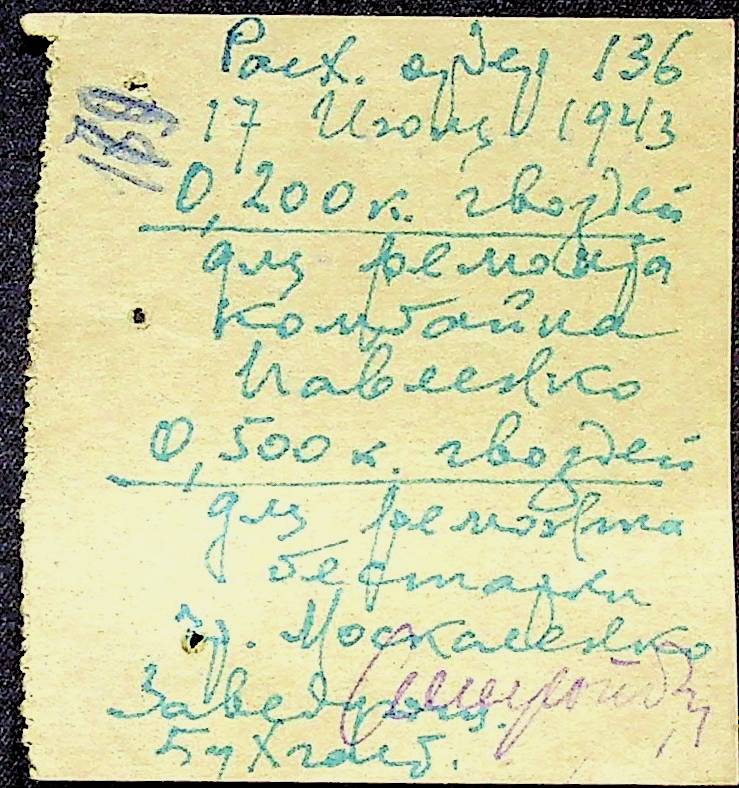 Расх. ордер 136
17 Июня 1943
139
0,200 к. гвоздей
для ремонта
комбайна
Павленко
0,500 к. гвоздей
для ремонта
бестарки
гр. Москаленко
Заведующ.
Бухгалт.